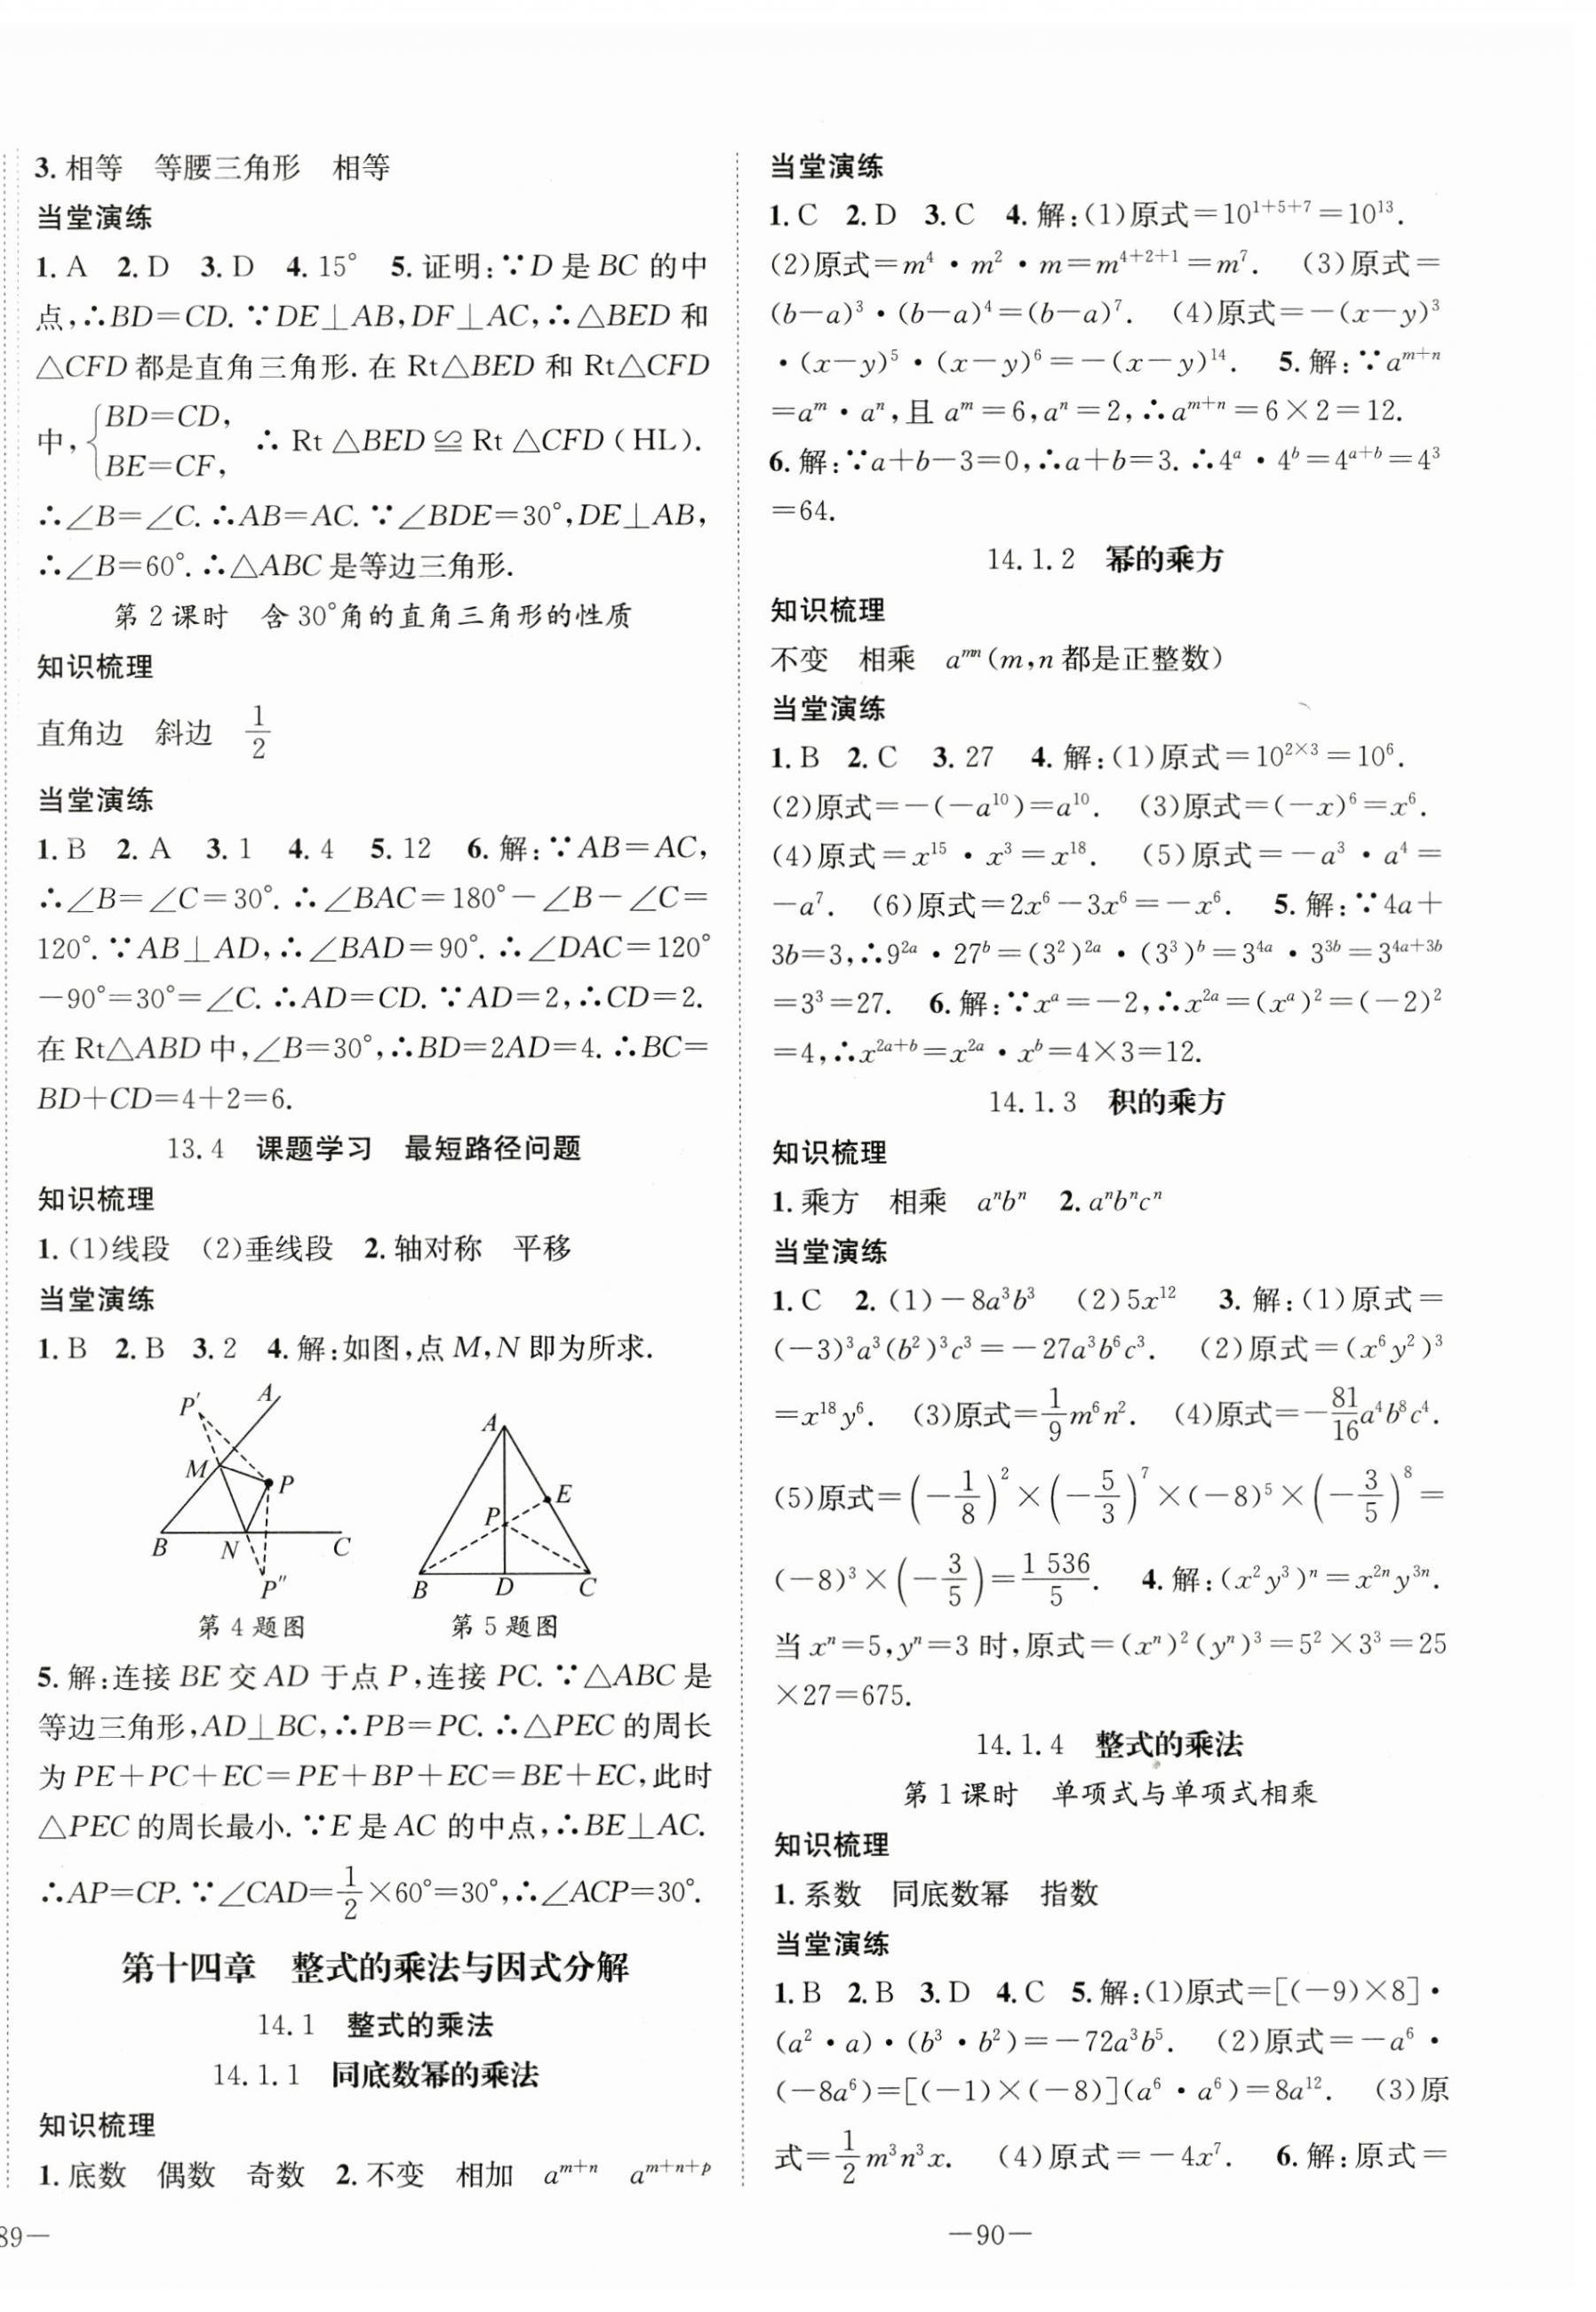 3. 相等　等腰三角形　相等
当堂演练
1. A　2. D　3. D　4. 15°　5. 证明：∵D 是 BC 的中
点，∴BD=CD. ∵DE⊥AB，DF⊥AC，∴△BED 和
△CFD 都是直角三角形. 在 Rt△BED 和 Rt△CFD
中，{BD=CD，BE=CF， ∴ Rt △BED≌Rt △CFD（HL）.
∴∠B=∠C. ∴AB=AC. ∵∠BDE=30°，DE⊥AB，
∴∠B=60°. ∴△ABC 是等边三角形.
第 2 课时　含 30°角的直角三角形的性质
知识梳理
直角边　斜边　1/2
当堂演练
1. B　2. A　3. 1　4. 4　5. 12　6. 解：∵AB=AC，
∴∠B=∠C=30°. ∴∠BAC=180°－∠B－∠C=
120°. ∵AB⊥AD，∴∠BAD=90°. ∴∠DAC=120°
－90°=30°=∠C. ∴AD=CD. ∵AD=2，∴CD=2.
在 Rt△ABD 中，∠B=30°，∴BD=2AD=4. ∴BC=
BD+CD=4+2=6.
13.4　课题学习　最短路径问题
知识梳理
1. (1)线段　(2)垂线段　2. 轴对称　平移
当堂演练
1. B　2. B　3. 2　4. 解：如图，点 M，N 即为所求.
P′ A M P B N C P″
A E P B D C
第 4 题图　第 5 题图
5. 解：连接 BE 交 AD 于点 P，连接 PC. ∵△ABC 是
等边三角形，AD⊥BC，∴PB=PC. ∴△PEC 的周长
为 PE+PC+EC=PE+BP+EC=BE+EC，此时
△PEC 的周长最小. ∵E 是 AC 的中点，∴BE⊥AC.
∴AP=CP. ∵∠CAD=1/2×60°=30°，∴∠ACP=30°.
第十四章　整式的乘法与因式分解
14.1　整式的乘法
14.1.1　同底数幂的乘法
知识梳理
1. 底数　偶数　奇数　2. 不变　相加　a^{m+n}　a^{m+n+p}
89－
当堂演练
1. C　2. D　3. C　4. 解：(1)原式=10^{1+5+7}=10^{13}.
(2)原式=m^4·m^2·m=m^{4+2+1}=m^7.　(3)原式=
(b－a)^3·(b－a)^4=(b－a)^7.　(4)原式=－(x－y)^3
·(x－y)^5·(x－y)^6=－(x－y)^{14}.　5. 解：∵a^{m+n}
=a^m·a^n，且 a^m=6，a^n=2，∴a^{m+n}=6×2=12.
6. 解：∵a+b－3=0，∴a+b=3. ∴4^a·4^b=4^{a+b}=4^3
=64.
14.1.2　幂的乘方
知识梳理
不变　相乘　a^{mn}(m，n 都是正整数)
当堂演练
1. B　2. C　3. 27　4. 解：(1)原式=10^{2×3}=10^6.
(2)原式=－(－a^{10})=a^{10}.　(3)原式=(－x)^6=x^6.
(4)原式=x^{15}·x^3=x^{18}.　(5)原式=－a^3·a^4=
－a^7.　(6)原式=2x^6－3x^6=－x^6.　5. 解：∵4a+
3b=3，∴9^{2a}·27^b=(3^2)^{2a}·(3^3)^b=3^{4a}·3^{3b}=3^{4a+3b}
=3^3=27.　6. 解：∵x^a=－2，∴x^{2a}=(x^a)^2=(－2)^2
=4，∴x^{2a+b}=x^{2a}·x^b=4×3=12.
14.1.3　积的乘方
知识梳理
1. 乘方　相乘　a^nb^n　2. a^nb^nc^n
当堂演练
1. C　2. (1)－8a^3b^3　(2)5x^{12}　3. 解：(1)原式=
(－3)^3a^3(b^2)^3c^3=－27a^3b^6c^3.　(2)原式=(x^6y^2)^3
=x^{18}y^6.　(3)原式=1/9 m^6n^2.　(4)原式=－81/16 a^4b^8c^4.
(5)原式=(－1/8)^2×(－5/3)^7×(－8)^5×(－3/5)^8=
(－8)^3×(－3/5)=1 536/5.　4. 解：(x^2y^3)^n=x^{2n}y^{3n}.
当 x^n=5，y^n=3 时，原式=(x^n)^2(y^n)^3=5^2×3^3=25
×27=675.
14.1.4　整式的乘法
第 1 课时　单项式与单项式相乘
知识梳理
1. 系数　同底数幂　指数
当堂演练
1. B　2. B　3. D　4. C　5. 解：(1)原式=[(－9)×8]·
(a^2·a)·(b^3·b^2)=－72a^3b^5.　(2)原式=－a^6·
(－8a^6)=[(－1)×(－8)](a^6·a^6)=8a^{12}.　(3)原
式=1/2 m^3n^3x.　(4)原式=－4x^7.　6. 解：原式=
－90－